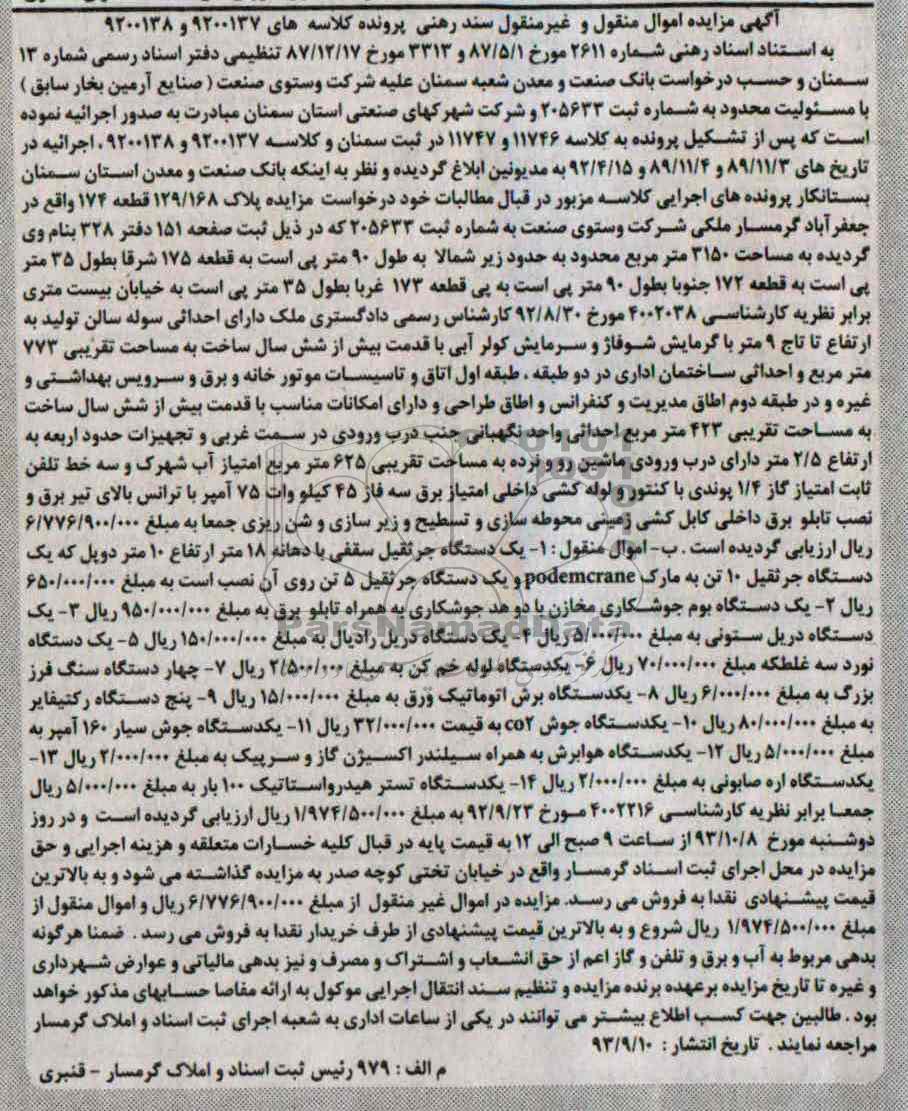 آگهی مزایده اموال منقول و غیرمنقول سند رهنی پرونده کلاسه های ۹۲۰۰۱۳۷ و ۹۲۰۰۱۳۸
به استناد اسناد رهنی شماره ۲۶۱۱ مورخ ۸۷/۵/۱ و ۳۳۱۳ مورخ ۸۷/۱۲/۱۷ تنظیمی دفتر اسناد رسمی شماره ۱۳
سمنان و حسب درخواست بانک صنعت و معدن شعبه سمنان علیه شرکت وستوی صنعت ( صنایع آرمین بخار سابق )
با مسئولیت محدود به شماره ثبت ۲۰۵۶۳۳ و شرکت شهرکهای صنعتی استان سمنان مبادرت به صدور اجرائیه نموده
است که پس از تشکیل پرونده به کلاسه ۱۱۷۴۶ و ۱۱۷۴۷ در ثبت سمنان و کلاسه ۹۲۰۰۱۳۷ و ۹۲۰۰۱۳۸ ، اجرائیه در
تاریخ های ۸۹/۱۱/۳ و ۸۹/۱۱/۴ و ۹۲/۴/۱۵ به مدیونین ابلاغ گردیده و نظر به اینکه بانک صنعت و معدن استان سمنان
بستانکار پرونده های اجرایی کلاسه مزبور در قبال مطالبات خود درخواست مزایده پلاک ۱۲۹/۱۶۸ قطعه ۱۷۴ واقع در
جعفرآباد گرمسار ملکی شرکت وستوی صنعت به شماره ثبت ۲۰۵۶۳۳ که در ذیل ثبت صفحه ۱۵۱ دفتر ۳۲۸ بنام وی
گردیده به مساحت ۳۱۵۰ متر مربع محدود به حدود زیر شمالا به طول ۹۰ متر پی است به قطعه ۱۷۵ شرقا بطول ۳۵ متر
پی است به قطعه ۱۷۲ جنوبا بطول ۹۰ متر پی است به پی قطعه ۱۷۳ غربا بطول ۳۵ متر پی است به خیابان بیست متری
برابر نظریه کارشناسی ۴۰۰۲۰۳۸ مورخ ۹۲/۸/۳۰ کارشناس رسمی دادگستری ملک دارای احداثی سوله سالن تولید به
ارتفاع تا تاج ۹ متر با گرمایش شوفاژ و سرمایش کولر آبی با قدمت بیش از شش سال ساخت به مساحت تقریبی ۷۷۳
متر مربع و احداثی ساختمان اداری در دو طبقه ، طبقه اول اتاق و تاسیسات موتور خانه و برق و سرویس بهداشتی و
غیره و در طبقه دوم اطاق مدیریت و کنفرانس و اطاق طراحی و دارای امکانات مناسب با قدمت بیش از شش سال ساخت
به مساحت تقریبی ۴۲۳ متر مربع احداثی واحد نگهبانی جنب درب ورودی در سمت غربی و تجهیزات حدود اربعه به
ارتفاع ۲/۵ متر دارای درب ورودی ماشین رو و نرده به مساحت تقریبی ۶۲۵ متر مربع امتیاز آب شهرک و سه خط تلفن
ثابت امتیاز گاز ۱/۴ پوندی با کنتور و لوله کشی داخلی امتیاز برق سه فاز ۴۵ کیلو وات ۷۵ آمپر با ترانس بالای تیر برق و
نصب تابلو برق داخلی کابل کشی زمینی محوطه سازی و تسطیح و زیر سازی و شن ریزی جمعا به مبلغ ۶/۷۷۶/۹۰۰/۰۰۰
ریال ارزیابی گردیده است . ب- اموال منقول : ۱- یک دستگاه جرثقیل سقفی با دهانه ۱۸ متر ارتفاع ۱۰ متر دوپل که یک
دستگاه جرثقیل ۱۰ تن به مارک podemcrane و یک دستگاه جرثقیل ۵ تن روی آن نصب است به مبلغ ۶۵۰/۰۰۰/۰۰۰
ریال ۲- یک دستگاه بوم جوشکاری مخازن با دو هد جوشکاری به همراه تابلو برق به مبلغ ۹۵۰/۰۰۰/۰۰۰ ریال ۳- یک
دستگاه دریل ستونی به مبلغ ۵/۰۰۰/۰۰۰ ریال ۴- یک دستگاه دریل رادیال به مبلغ ۱۵۰/۰۰۰/۰۰۰ ریال ۵- یک دستگاه
نورد سه غلطکه مبلغ ۷۰/۰۰۰/۰۰۰ ریال ۶- یکدستگاه لوله خم کن به مبلغ ۲/۵۰۰/۰۰۰ ریال ۷- چهار دستگاه سنگ فرز
بزرگ به مبلغ ۶/۰۰۰/۰۰۰ ریال ۸- یکدستگاه برش اتوماتیک ورق به مبلغ ۱۵/۰۰۰/۰۰۰ ریال ۹- پنج دستگاه رکتیفایر
به مبلغ ۸۰/۰۰۰/۰۰۰ ریال ۱۰- یکدستگاه جوش co۲ به قیمت ۳۲/۰۰۰/۰۰۰ ریال ۱۱- یکدستگاه جوش سیار ۱۶۰ آمپر به
مبلغ ۵/۰۰۰/۰۰۰ ریال ۱۲- یکدستگاه هوابرش به همراه سیلندر اکسیژن گاز و سرپیک به مبلغ ۲/۰۰۰/۰۰۰ ریال ۱۳-
یکدستگاه اره صابونی به مبلغ ۲/۰۰۰/۰۰۰ ریال ۱۴- یکدستگاه تستر هیدرواستاتیک ۱۰۰ بار به مبلغ ۵/۰۰۰/۰۰۰ ریال
جمعا برابر نظریه کارشناسی ۴۰۰۲۲۱۶ مورخ ۹۲/۹/۲۳ به مبلغ ۱/۹۷۴/۵۰۰/۰۰۰ ریال ارزیابی گردیده است و در روز
دوشنبه مورخ ۹۳/۱۰/۸ از ساعت ۹ صبح الی ۱۲ به قیمت پایه در قبال کلیه خسارات متعلقه و هزینه اجرایی و حق
مزایده در محل اجرای ثبت اسناد گرمسار واقع در خیابان تختی کوچه صدر به مزایده گذاشته می شود و به بالاترین
قیمت پیشنهادی نقدا به فروش می رسد. مزایده در اموال غیر منقول از مبلغ ۶/۷۷۶/۹۰۰/۰۰۰ ریال و اموال منقول از
مبلغ ۱/۹۷۴/۵۰۰/۰۰۰ ریال شروع و به بالاترین قیمت پیشنهادی از طرف خریدار نقدا به فروش می رسد . ضمنا هرگونه
بدهی مربوط به آب و برق و تلفن و گاز اعم از حق انشعاب و اشتراک و مصرف و نیز بدهی مالیاتی و عوارض شهرداری
و غیره تا تاریخ مزایده برعهده برنده مزایده و تنظیم سند انتقال اجرایی موکول به ارائه مفاصا حسابهای مذکور خواهد
بود . طالبین جهت کسب اطلاع بیشتر می توانند در یکی از ساعات اداری به شعبه اجرای ثبت اسناد و املاک گرمسار
مراجعه نمایند . تاریخ انتشار : ۹۳/۹/۱۰
م الف : ۹۷۹ رئیس ثبت اسناد و املاک گرمسار - قنبری
ParsNamadData